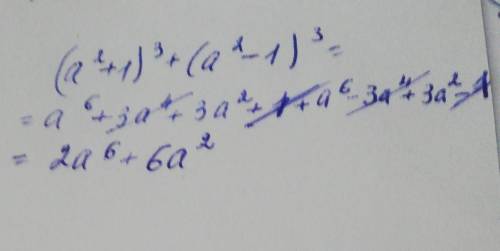 (a²+1)³+(a²-1)³=
= a⁶+3a⁴+3a²+1+a⁶-3a⁴+3a²-1
= 2a⁶+6a²